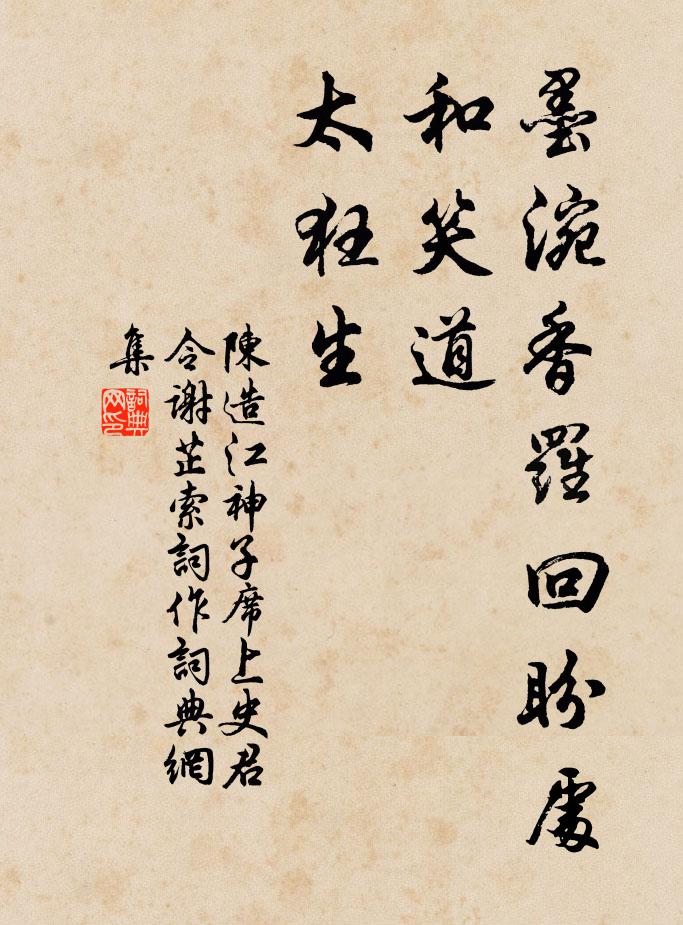 墨涴香羅回盼處
和笑道
太狂生
陳造江神子席上史君
令謝芷索詞作詞典網
集
詞典网印